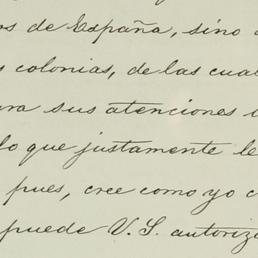 os de España, sino
s colonias, de las cua
ra sus atenciones
lo que justamente le
pues, cree como yo
puede V. S. autoriz